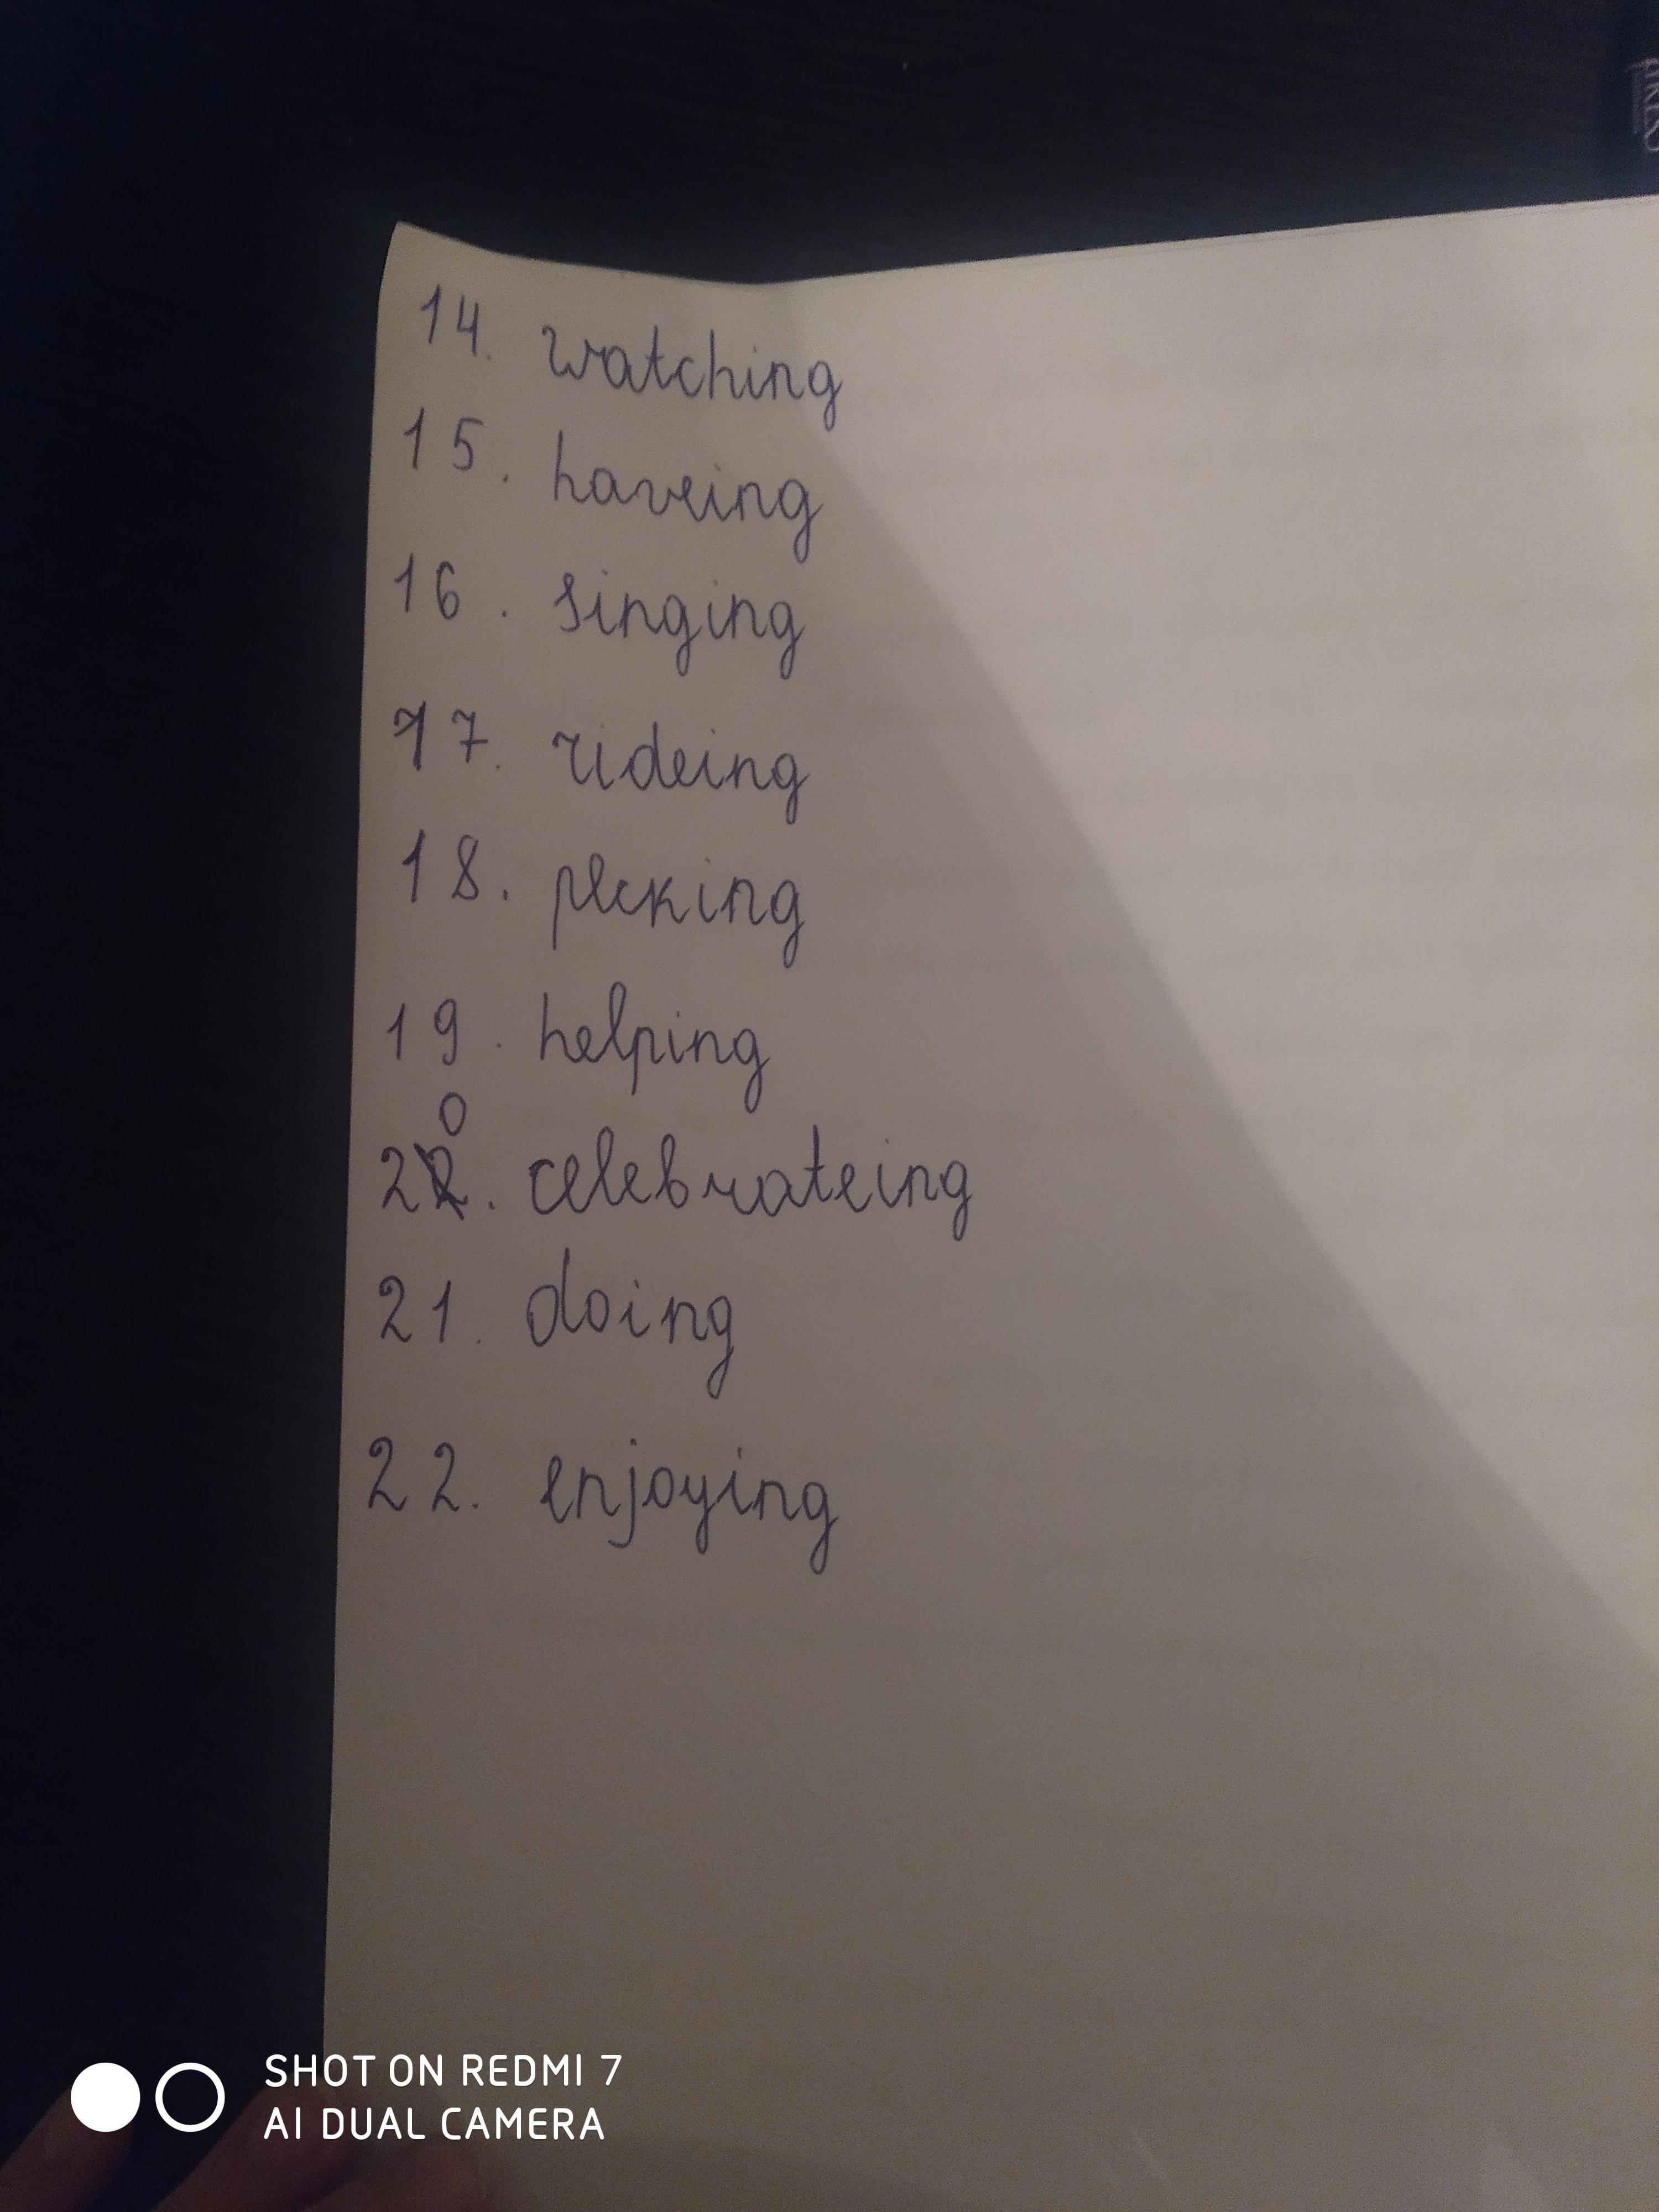 14. watching
15. haveing
16. singing
17. rideing
18. pecking
19. helping
20. celebrateing
21. doing
22. enjoying
SHOT ON REDMI 7
AI DUAL CAMERA